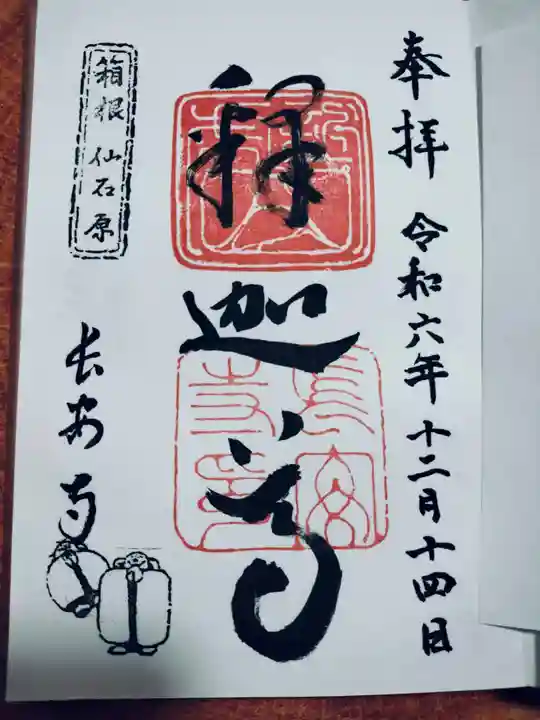 奉拝 令和六年十二月十四日
釋迦尊
箱根仙石原
長安寺
長安寺印